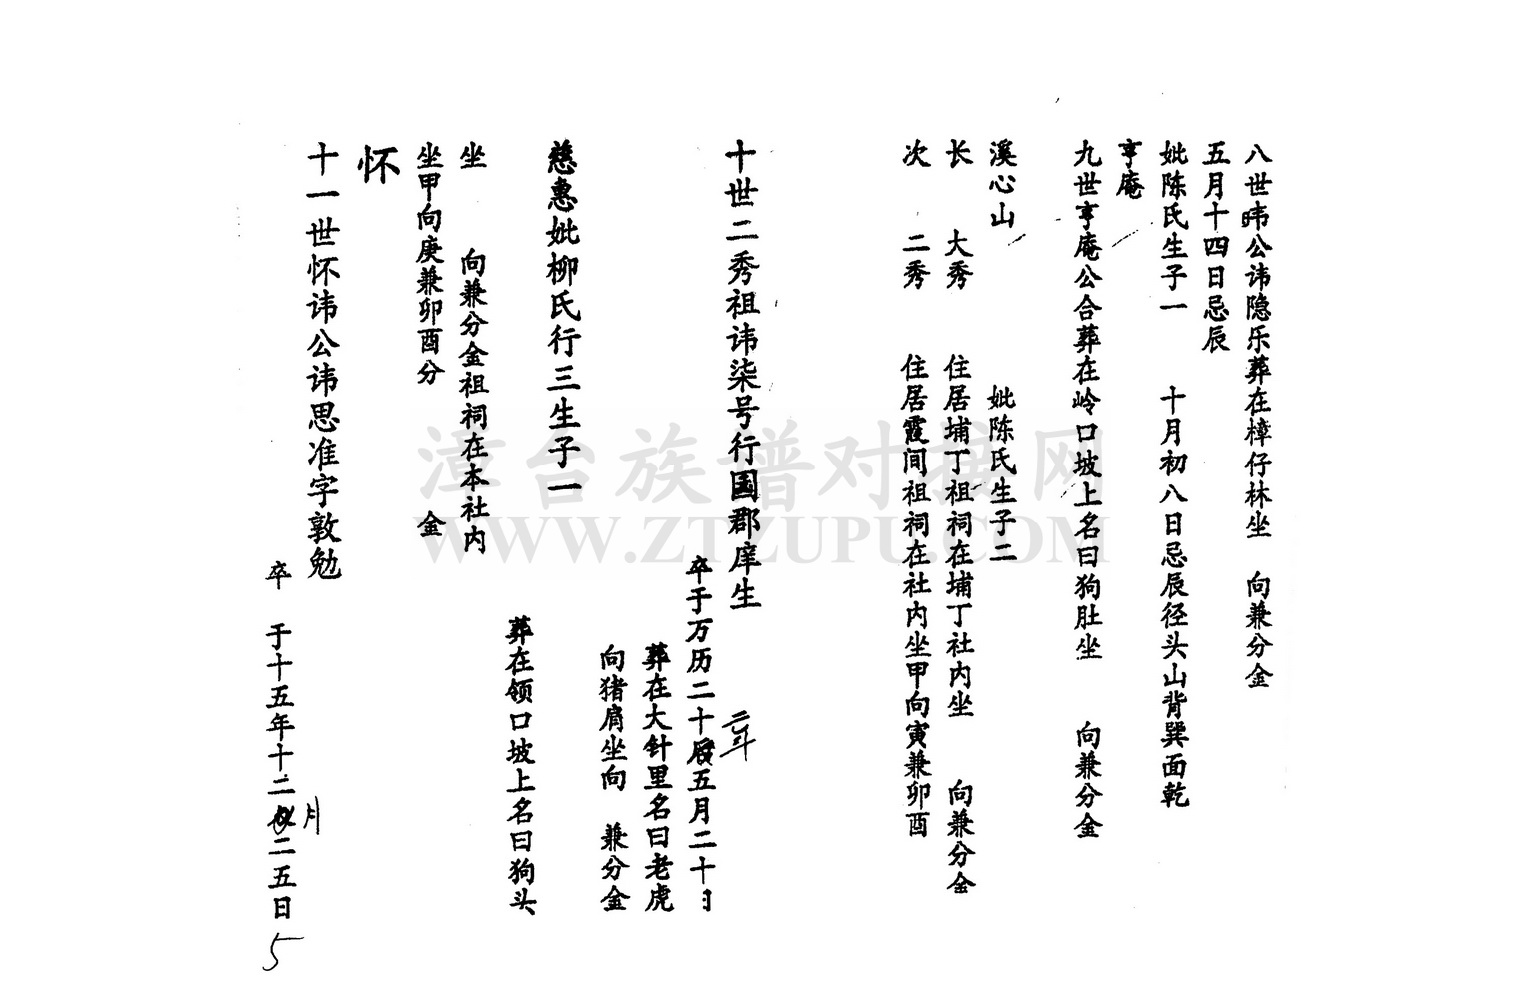 八世玮公讳隐乐葬在樟仔林坐　向兼分金
五月十四日忌辰
妣陈氏生子一　十月初八日忌辰径头山背巽面乾
亨庵
九世亨庵公合葬在岭口坡上名曰狗肚坐　向兼分金
溪心山　妣陈氏生子二
长　大秀　住居埔丁祖祠在埔丁社内坐　向兼分金
次　二秀　住居霞间祖祠在社内坐甲向寅兼卯酉
十世二秀祖讳柒号行国郡庠生
二年
卒于万历二十五月二十日
葬在大针里名曰老虎
向猪肩坐向　兼分金
慈惠妣柳氏行三生子一
葬在领口坡上名曰狗头
坐　向兼分金祖祠在本社内
坐甲向庚兼卯酉分　金
怀
十一世怀讳公讳思准字敦勉
卒　于十五年十二月二五日
5
漳台族谱对接网
WWW.ZTZUPU.COM